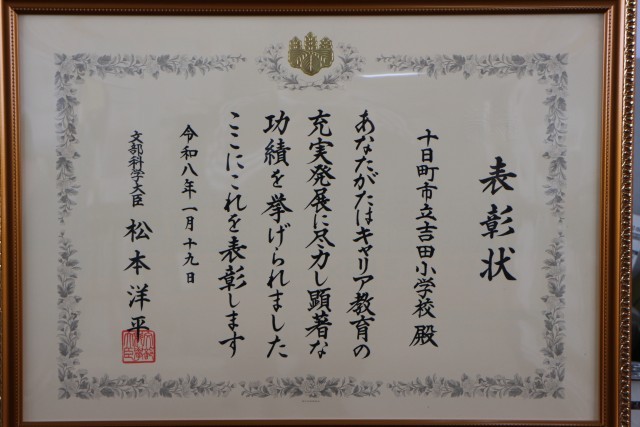 表彰状
十日町市立吉田小学校 殿
あなたがたはキャリア教育の
充実発展に尽力し顕著な
功績を挙げられました
ここにこれを表彰します
令和八年一月十九日
文部科学大臣 松本洋平